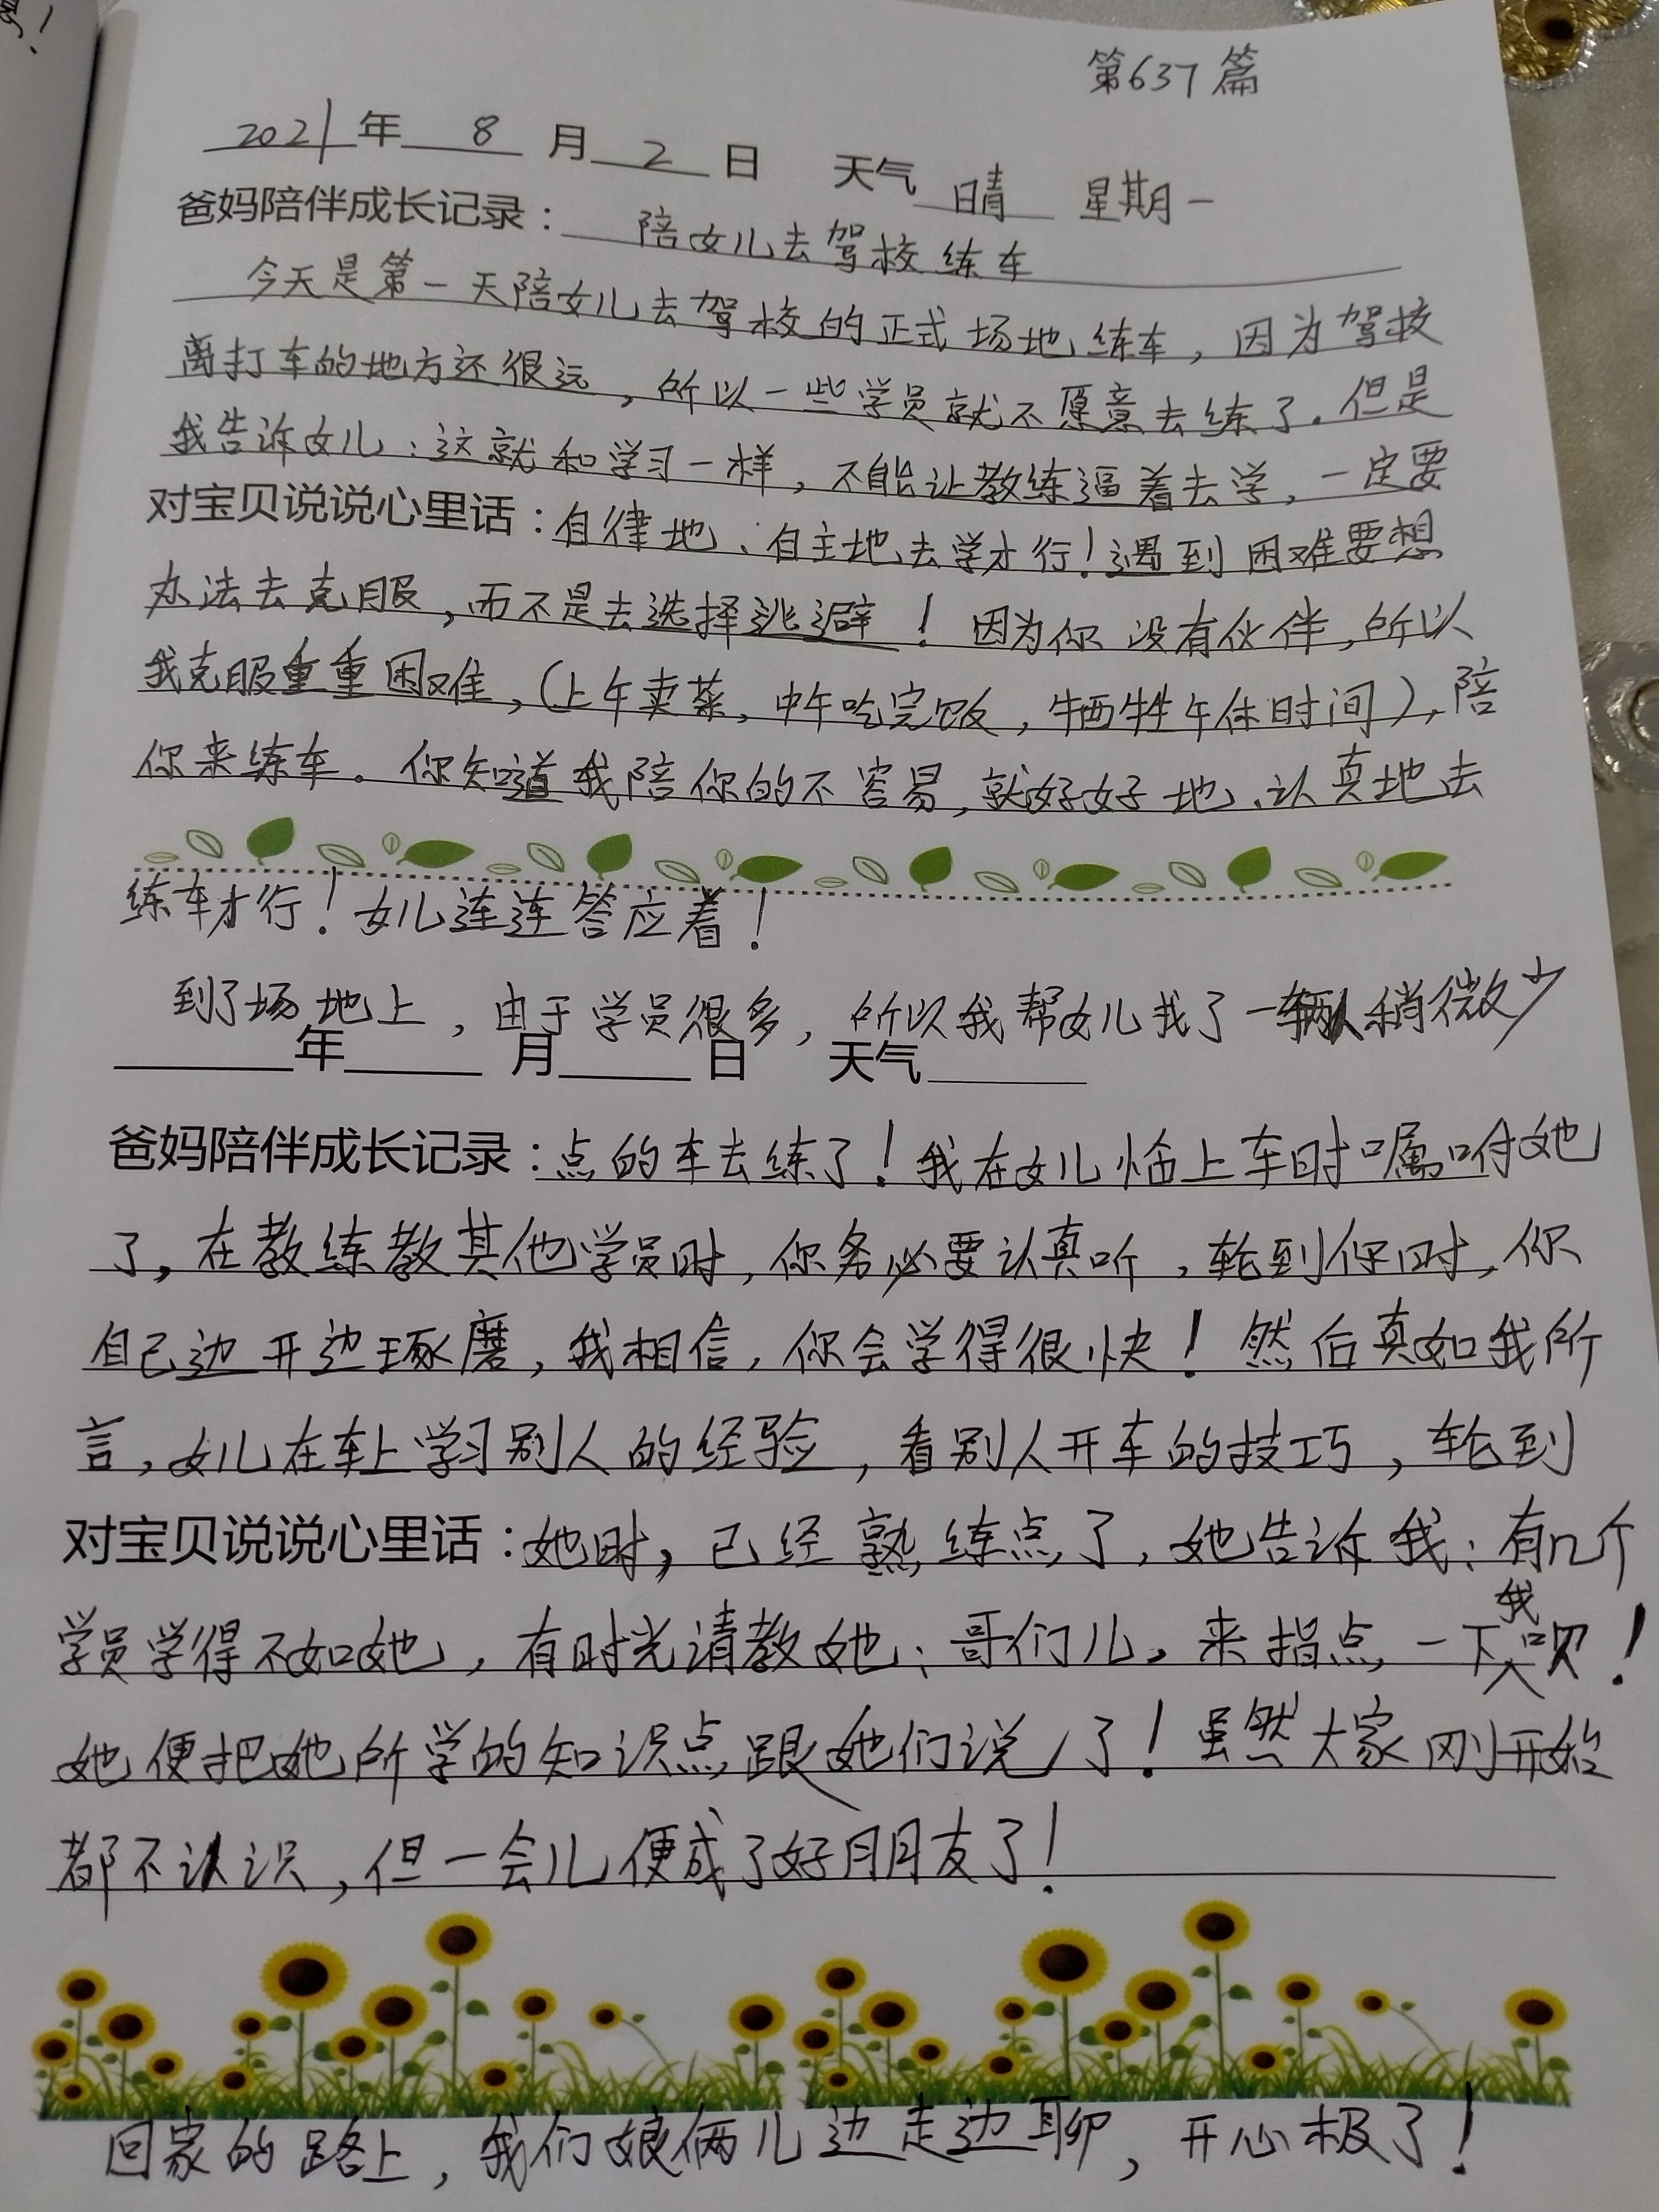 第637篇
2021年 8 月 2 日 天气 晴 星期一
爸妈陪伴成长记录：陪女儿去驾校练车
今天是第一天陪女儿去驾校的正式场地练车，因为驾校
离打车的地方还很远，所以一些学员就不愿意去练了。但是
我告诉女儿：这就和学习一样，不能让教练逼着去学，一定要
对宝贝说说心里话：自律地、自主地去学才行！遇到困难要想
办法去克服，而不是去选择逃避！因为你没有伙伴，所以
我克服重重困难，（上午卖菜，中午吃完饭，牺牲午休时间），陪
你来练车。你知道我陪你的不容易，就好好地、认真地去
练车才行！女儿连连答应着！
到了场地上，由于学员很多，所以我帮女儿找了一辆人稍微少
年 月 日 天气
爸妈陪伴成长记录：点的车去练了！我在女儿临上车时嘱咐她
了，在教练教其他学员时，你务必要认真听，轮到你时，你
自己边开边琢磨，我相信，你会学得很快！然后真如我所
言，女儿在车上学习别人的经验，看别人开车的技巧，轮到
对宝贝说说心里话：她时，已经熟练点了，她告诉我：有几个
学员学得不如她，有时光请教她：哥们儿，来指点一下我呗！
她便把她所学的知识点跟她们说了！虽然大家刚开始
都不认识，但一会儿便成了好朋友了！
回家的路上，我们娘俩儿边走边聊，开心极了！